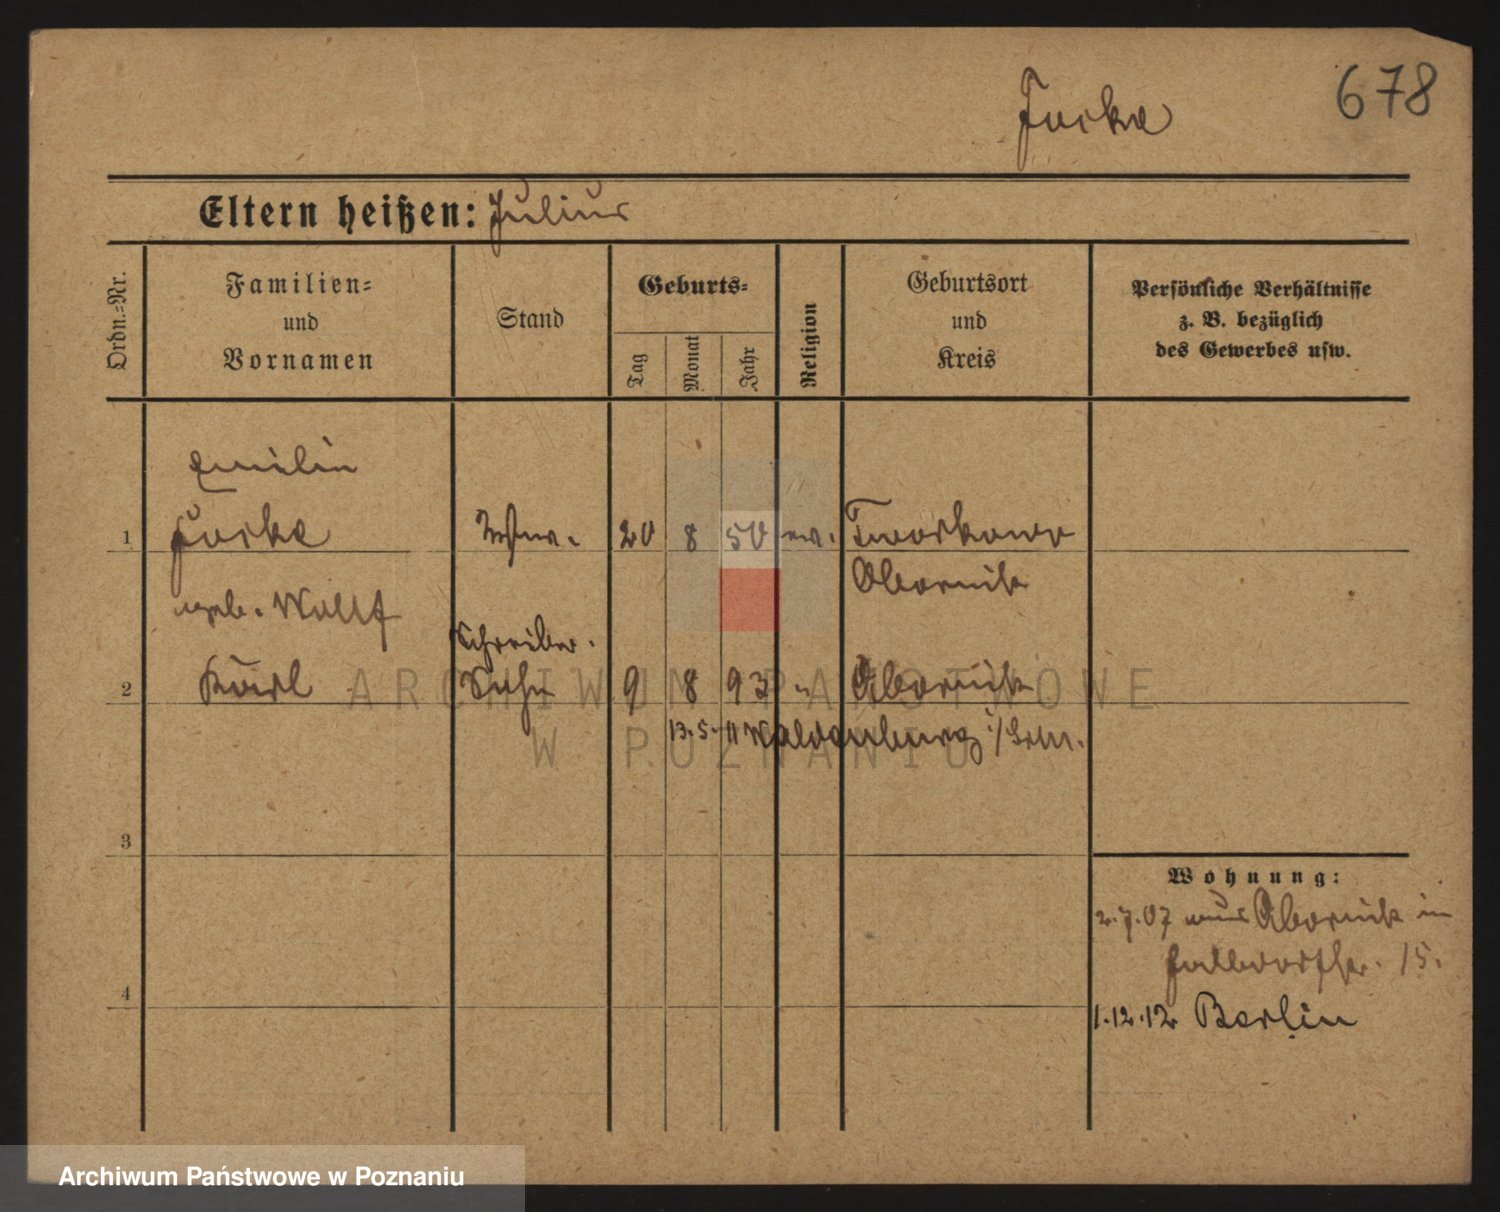 678
Eltern heißen: Julius
Ordn.-Nr.
Familien-
und
Vornamen
Stand
Geburts-
Tag
Monat
Jahr
Religion
Geburtsort
und
Kreis
Persönliche Verhältnisse
z. B. bezüglich
des Gewerbes usw.
Emilie
1 20 8 50 ev. Tworkowo
geb. Wolff Obornik
Schreiber
2 Karl 9 8 93 " Obornik
13.5.11 Waldenburg i/Schl.
3
Wohnung:
2.7.07 aus Obornik in
15.
4
1.12.12 Berlin
ARCHIWUM PAŃSTWOWE
W POZNANIU
Archiwum Państwowe w Poznaniu